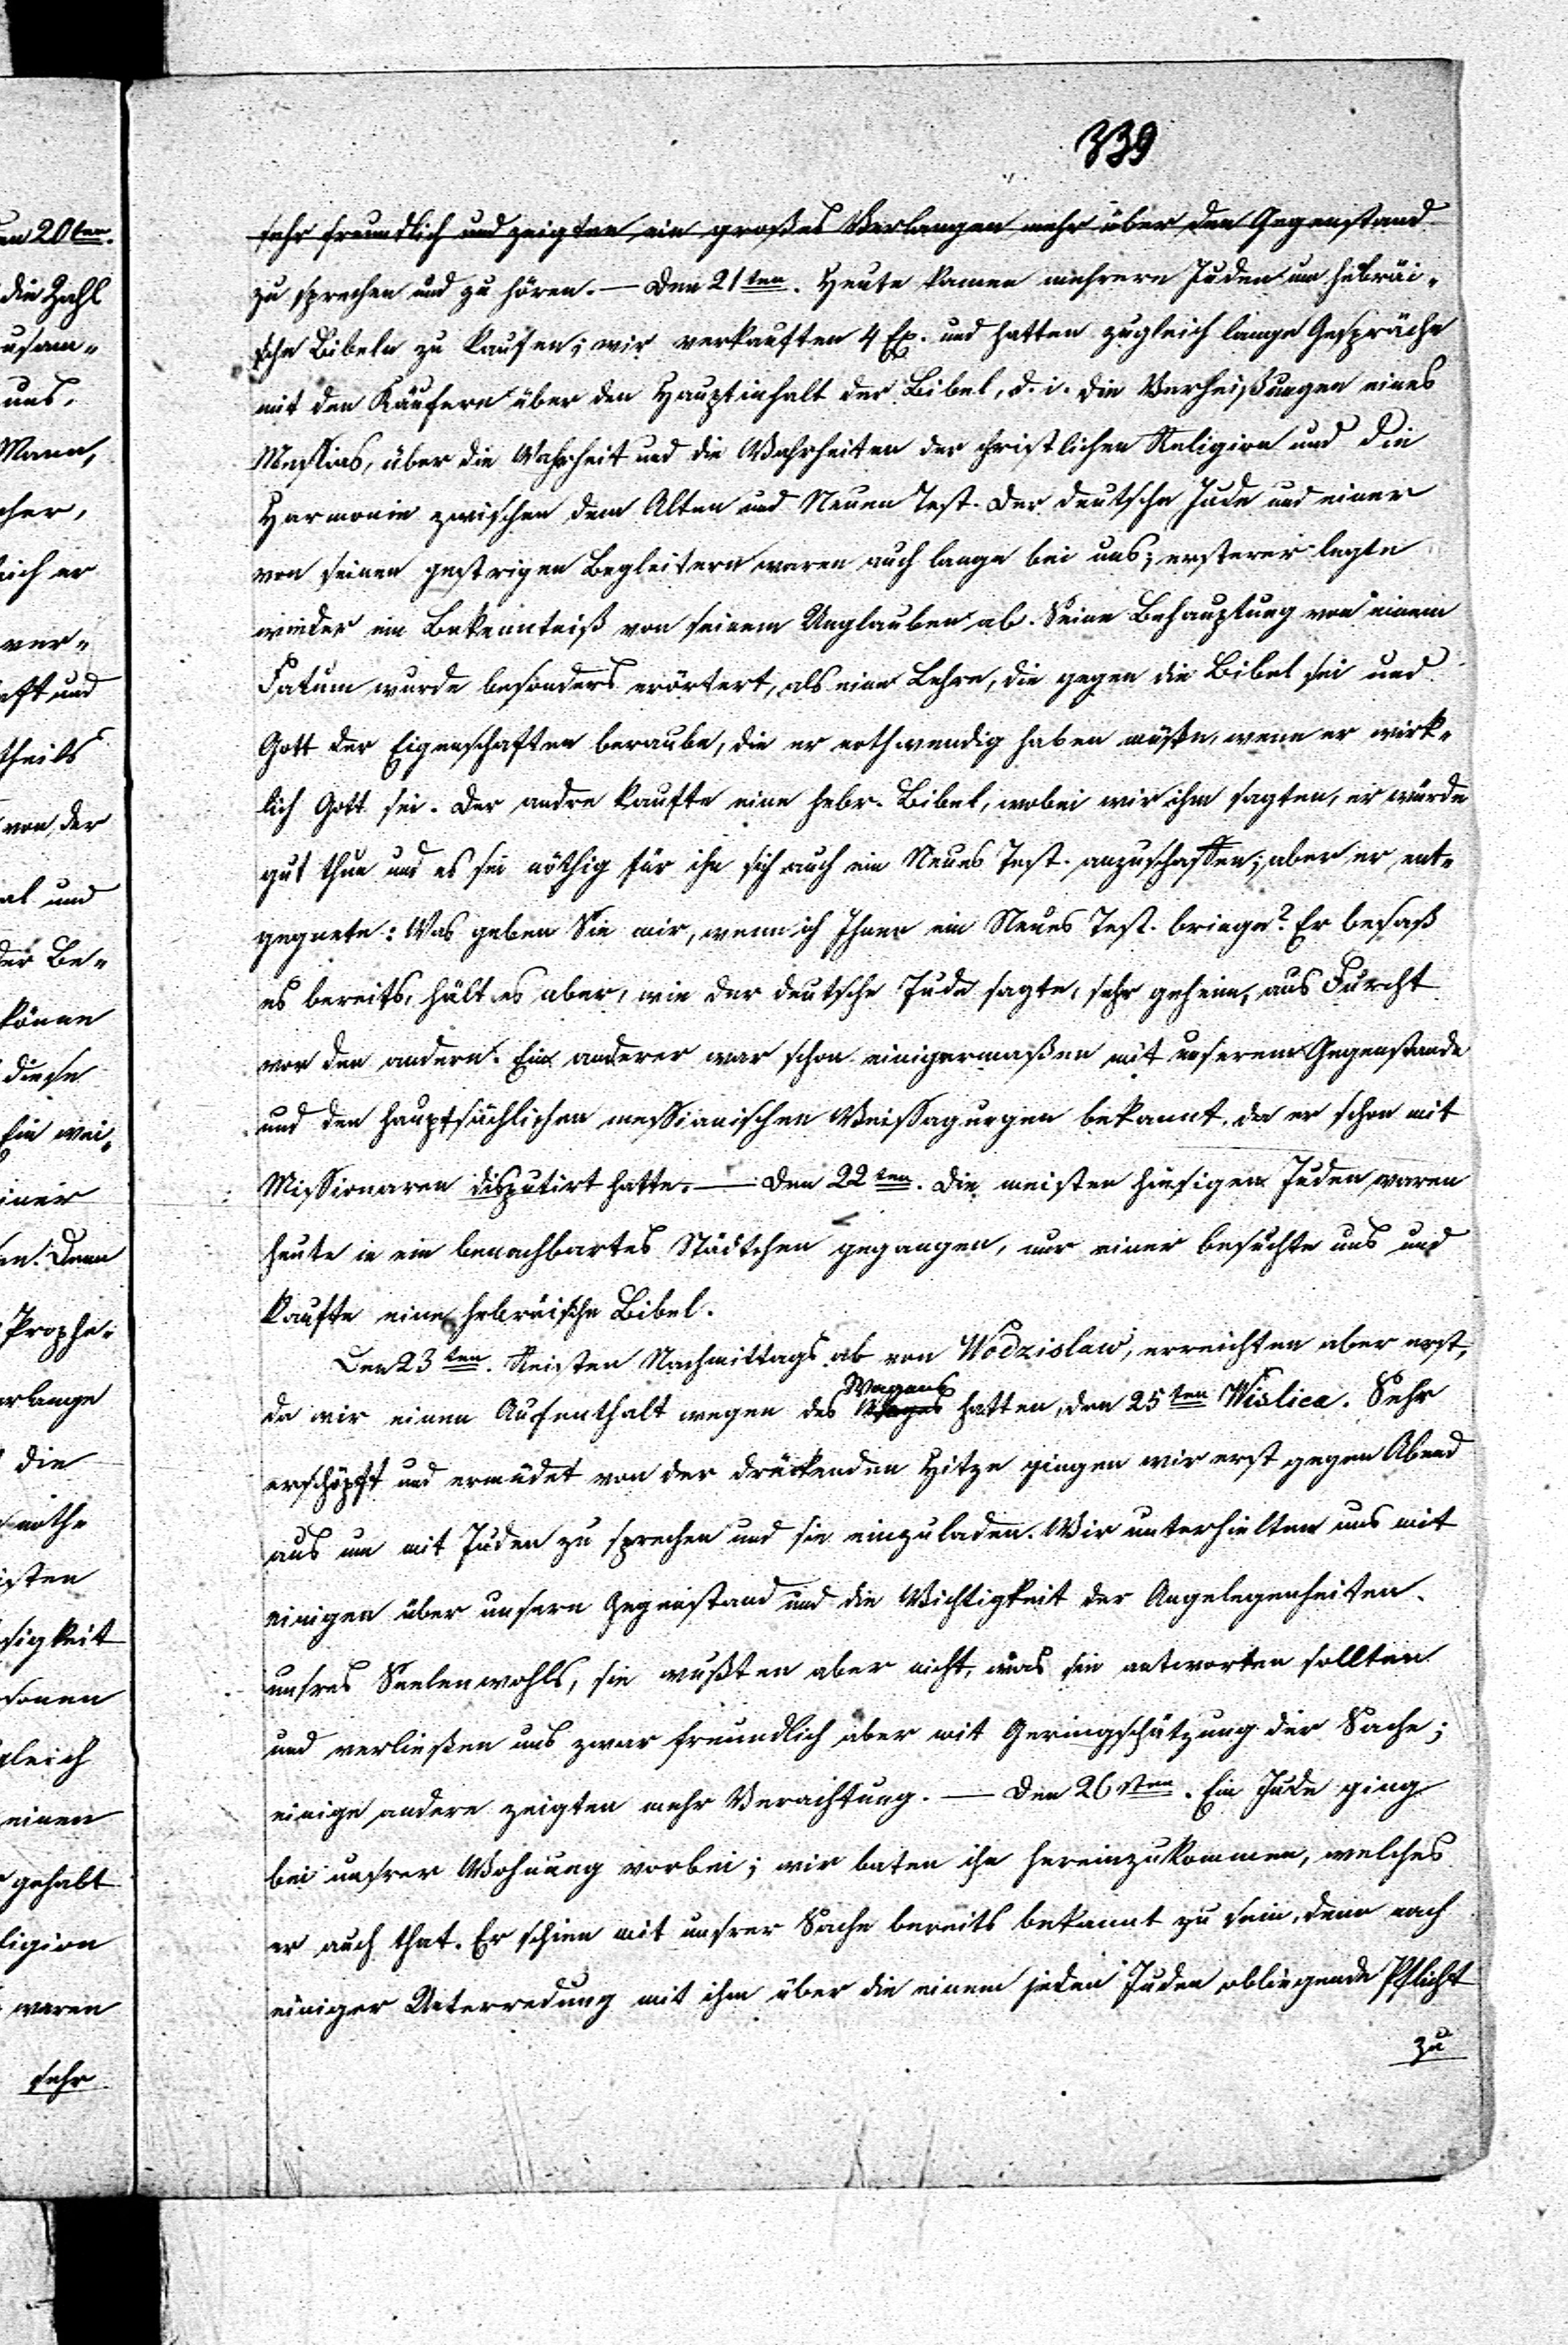 339
sehr freundlich und zeigten ein großes Verlangen mehr über den Gegenstand
zu sprechen und zu hören. — Den 21ten. Heute kamen mehrere Juden um hebräi-
sche Bibeln zu kaufen; wir verkauften 4 Ex. und hatten zugleich lange Gespräche
mit den Käufern über den Hauptinhalt der Bibel, d. i. die Verheißungen eines
Messias, über die Wahrheit und die Wahrheiten der christlichen Religion und die
Harmonie zwischen dem Alten und Neuen Test. Der deutsche Jude und einer
von seinen gestrigen Begleitern waren auch lange bei uns; ersterer legte
wieder ein Bekenntniß von seinem Unglauben ab. Seine Behauptung von einem
Fatum wurde besonders erörtert, als eine Lehre, die gegen die Bibel sei und
Gott der Eigenschaften beraube, die er nothwendig haben müßte, wenn er wirk-
lich Gott sei. Der andre kaufte eine hebr. Bibel, wobei wir ihm sagten, er würde
gut thun und es sei nöthig für ihn sich auch ein Neues Test. anzuschaffen; aber er ent-
gegnete: Was geben Sie mir, wenn ich Ihnen ein Neues Test. bringe? Er besaß
es bereits, hält es aber, wie der deutsche Jude sagte, sehr geheim, aus Furcht
vor den andern. Ein anderer war schon einigermaßen mit unserem Gegenstande
und den hauptsächlichen messianischen Weissagungen bekannt, da er schon mit
Missionaren disputirt hatte. — Den 22ten. Die meisten hiesigen Juden waren
heute in ein benachbartes Städtchen gegangen, nur einer besuchte uns und
kaufte eine hebräische Bibel.
Den 23ten. Reisten Nachmittags ab von Wodzislaw, erreichten aber erst,
Wagens
da wir einen Aufenthalt wegen des hatten, den 25ten Wislica. Sehr
erschöpft und ermüdet von der drückenden Hitze gingen wir erst gegen Abend
aus um mit Juden zu sprechen und sie einzuladen. Wir unterhielten uns mit
einigen über unsern Gegenstand und die Wichtigkeit der Angelegenheiten
unsres Seelenwohls, sie wußten aber nicht, was sie antworten sollten
und verließen uns zwar freundlich aber mit Geringschätzung der Sache;
einige andere zeigten mehr Verachtung. — Den 26sten. Ein Jude ging
bei unsrer Wohnung vorbei; wir baten ihn hereinzukommen, welches
er auch that. Er schien mit unsrer Sache bereits bekannt zu sein, denn nach
einiger Unterredung mit ihm über die einem jeden Juden obliegende Pflicht
zu